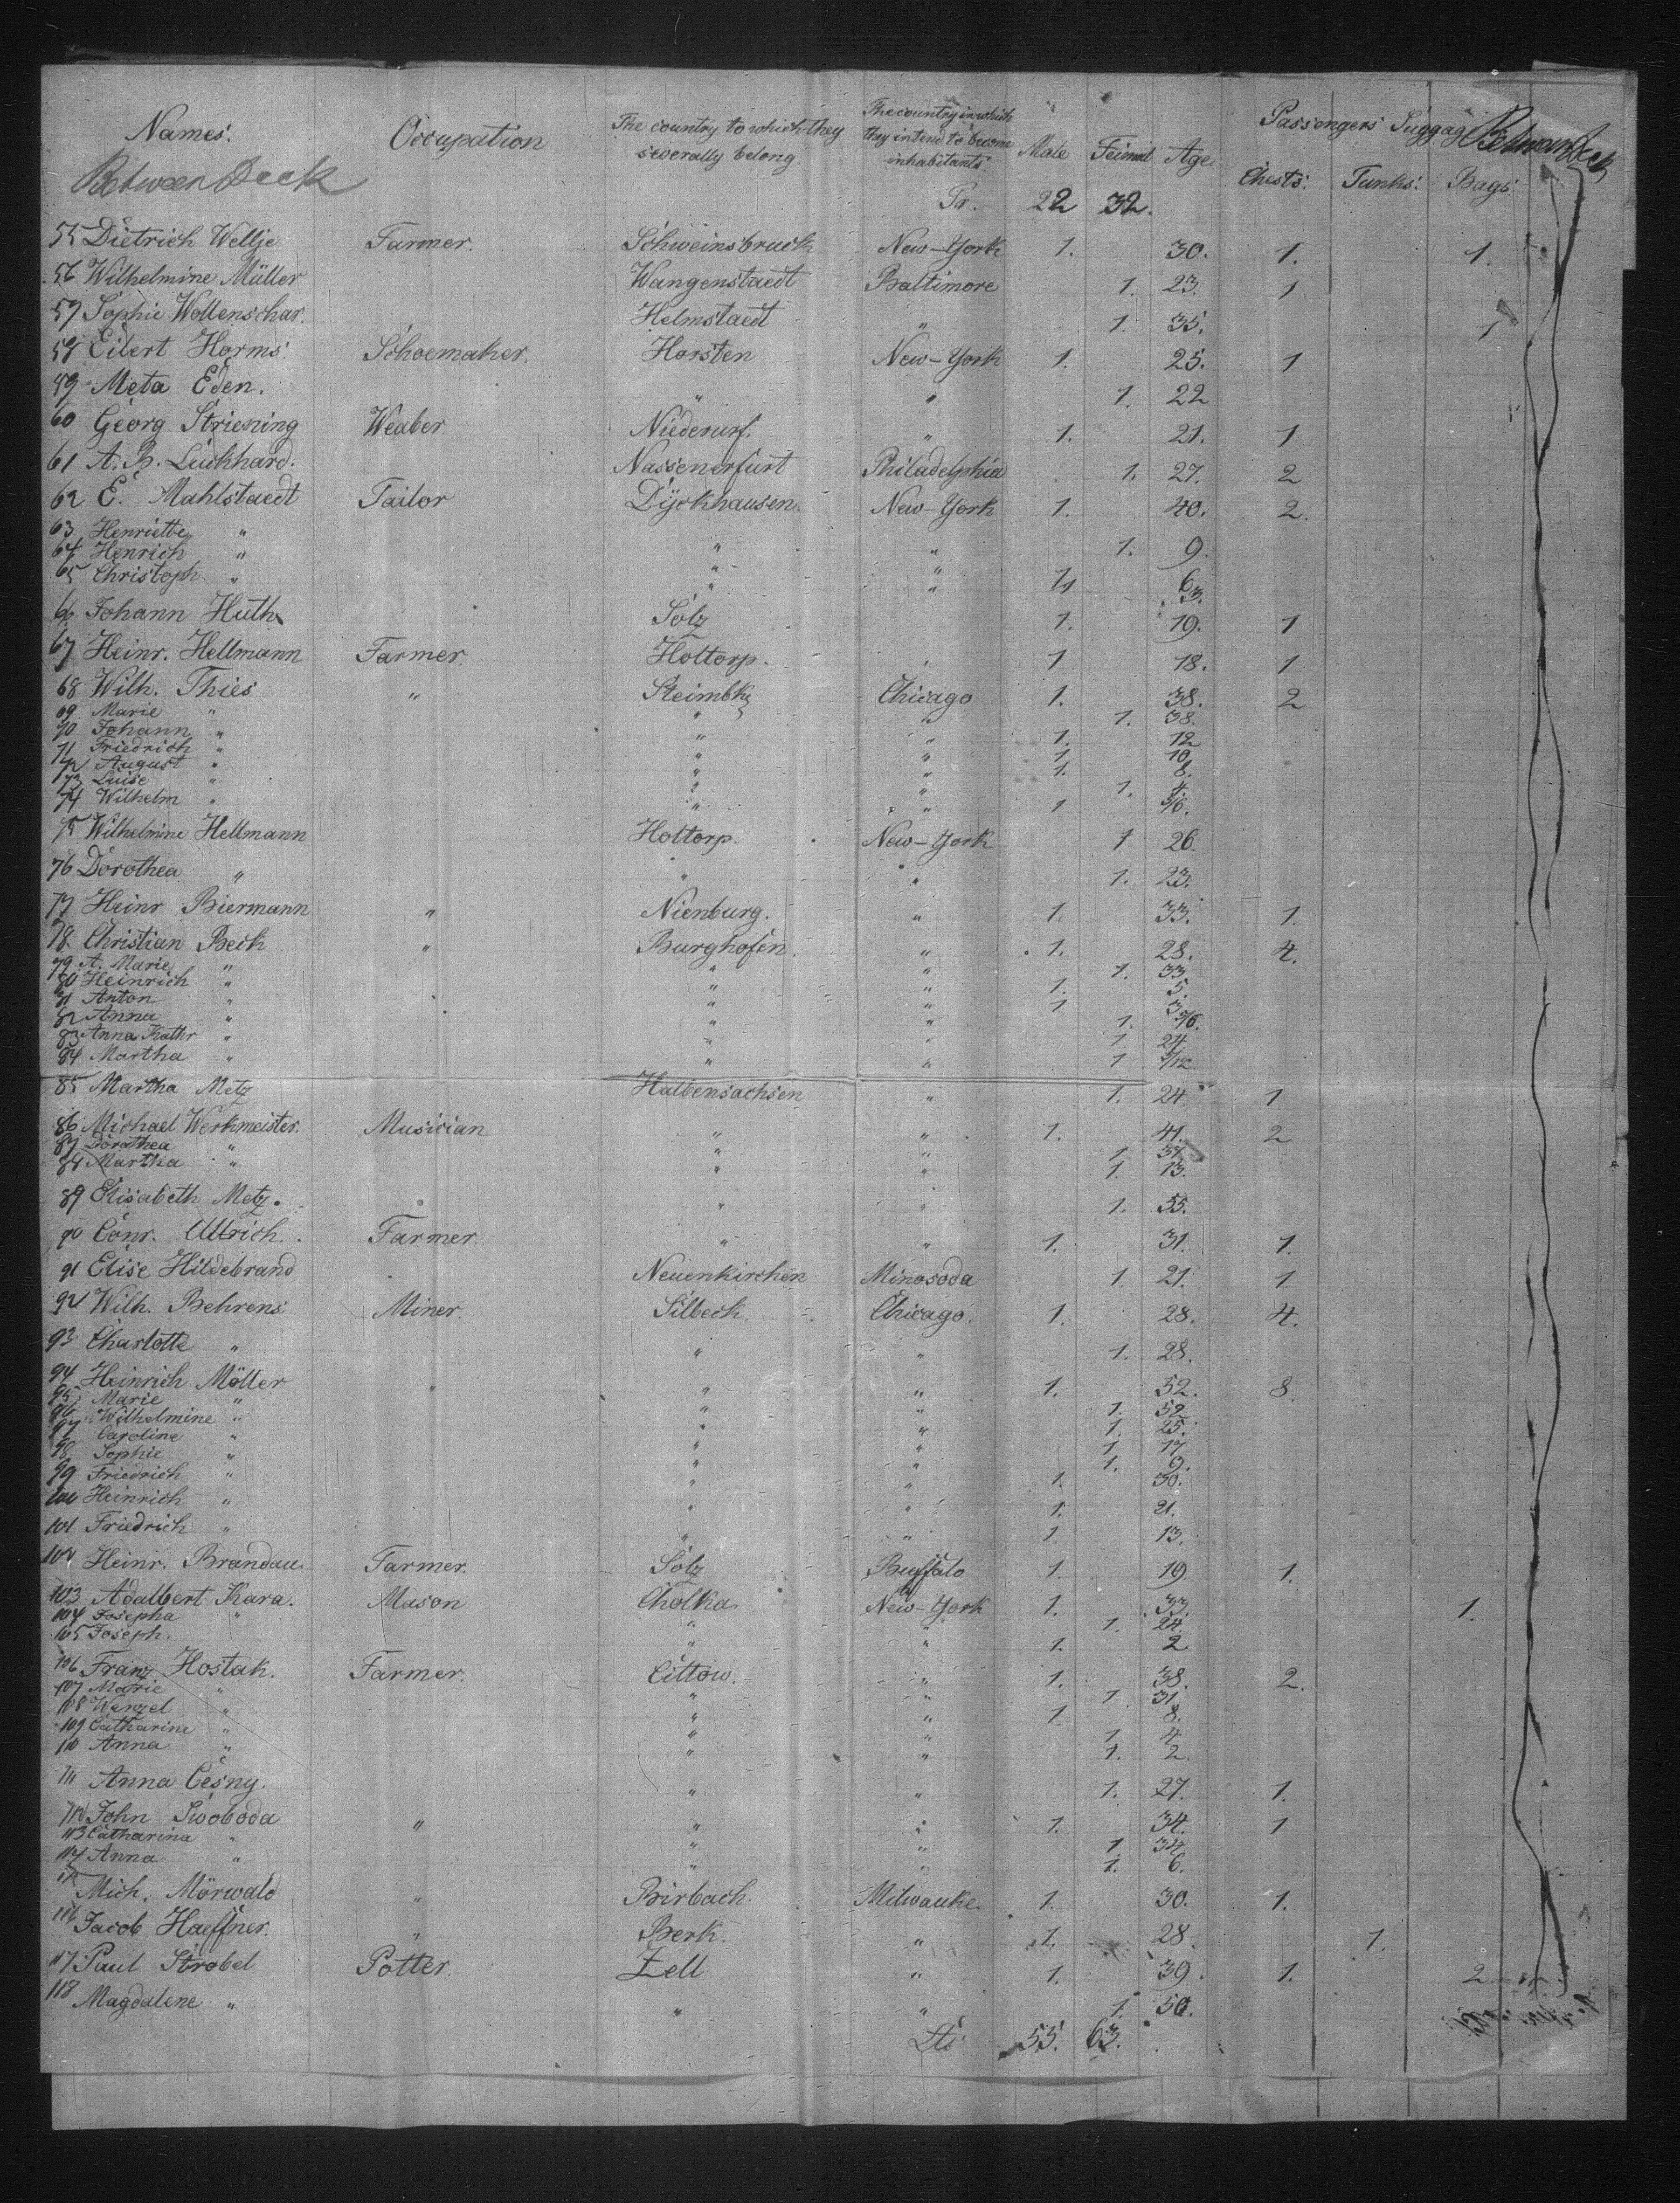 Names. Occupation The country to which they severally belong. The country in which they intend to become inhabitants. Male Feimal Age Passengers Luggag Between Deck
Between Deck Chests. Tunks. Bags.
Tr. 22 32.
55 Dietrich Wellje Farmer. Schweinsbruch New-York 1. 30. 1. 1.
56 Wilhelmine Müller Wangenstaedt Baltimore 1. 23. 1
57 Sophie Wollenschar. Helmstaedt " 1. 35. 1
58 Eilert Harms Schoemaker. Horsten New-York 1. 25. 1
59 Meta Eden. " " 1. 22
60 Georg Striening Weaber Niederurf. " 1. 21. 1
61 A. B. Luckhard. Nassenerfurt Philadelphia 1. 27. 2
62 E. Mahlstaedt Tailor Dÿckhausen. New-York 1. 40. 2.
63 Henriette " " " 1. 9.
64 Henrich " " " 1 6
65 Christoph " " " 1 3.
66 Johann Huth Solz 1. 19. 1
67 Heinr. Hellmann Farmer. Hottorp. " 1 18. 1
68 Wilh. Thies " Steimbke Chicago 1. 38. 2
69 Marie " " " 1. 38.
70 Johann " " " 1. 12
71 Friedrich " " " 1 10
72 August " " " 1. 8.
73 Luise " " " 1. 4.
74 Wilhelm " " " 1
75 Wilhelmine Hellmann Hottorp. New-York 1 26.
76 Dorothea " " " 1. 23.
77 Heinr Biermann " Nienburg. " 1. 33. 1.
78. Christian Beck " Burghofen. " 1. 28. 4.
79 A. Marie " " " 1. 33.
80 Heinrich " " " 1. 5.
81 Anton " " " 1 3.
82 Anna " " " 1.
83 Anna Kathr " " " 1 24
84 Martha " " " 1
85 Martha Metz Halbensachsen " 1. 24. 1
86 Michael Werkmeister. Musician " " 1. 41. 2
87 Dorothea " " " 1 37
88 Martha " " " 1. 13.
89 Elisabeth Metz. " " 1. 55.
90 Conr. Ullrich. Farmer. " " 1. 31. 1.
91 Elise Hildebrand Neuenkirchen Minosoda 1. 21. 1
92 Wilh. Behrens Miner. Silbeck. Chicago. 1. 28. 4.
93 Charlotte " " " 1. 28.
94 Heinrich Möller " " " 1. 52. 8.
95 Marie " " " 1. 52
96 Wilhelmine " " " 1. 25.
97 Caroline " " " 1 17
98 Sophie " " " 1. 9.
99 Friedrich " " " 1. 30.
100 Heinrich " " " 1. 21.
101 Friedrich " " " 1 13.
102 Heinr. Brandau. Farmer. Solz Buffalo 1. 19 1.
103 Adalbert Kara. Mason Cholka New-York 1. 33. 1.
104 Josepha " " " 1. 24.
105 Joseph. " " 1. 2
106 Franz Hostak. Farmer. Cittow. " 1. 38. 2.
107 Marie " " " 1 31
108 Wenzel " " " 1 8.
109 Catharine " " " 1 4
110 Anna " " " 1. 2.
111 Anna Cesny. " " 1. 27. 1.
112 John Swoboda " " " 1. 34. 1
113 Catharina " " " 1. 34
114 Anna " " " 1. 6.
115 Mich. Mörwald " Birbach. Milwauke. 1. 30. 1.
116 Jacob Haeffner. " Berk. " 1. 28. 1.
117 Paul Strobel Potter. Zell " 1. 39. 1. 2
118 Magdalene " " " 1. 50.
55. 63.